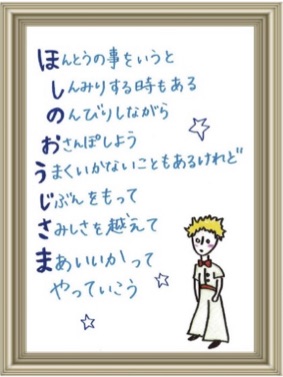 ほんとうの事をいうと
しんみりする時もある
のんびりしながら
おさんぽしよう
うまくいかないこともあるけれど
じぶんをもって
さみしさを越えて
まあいいかって
やっていこう